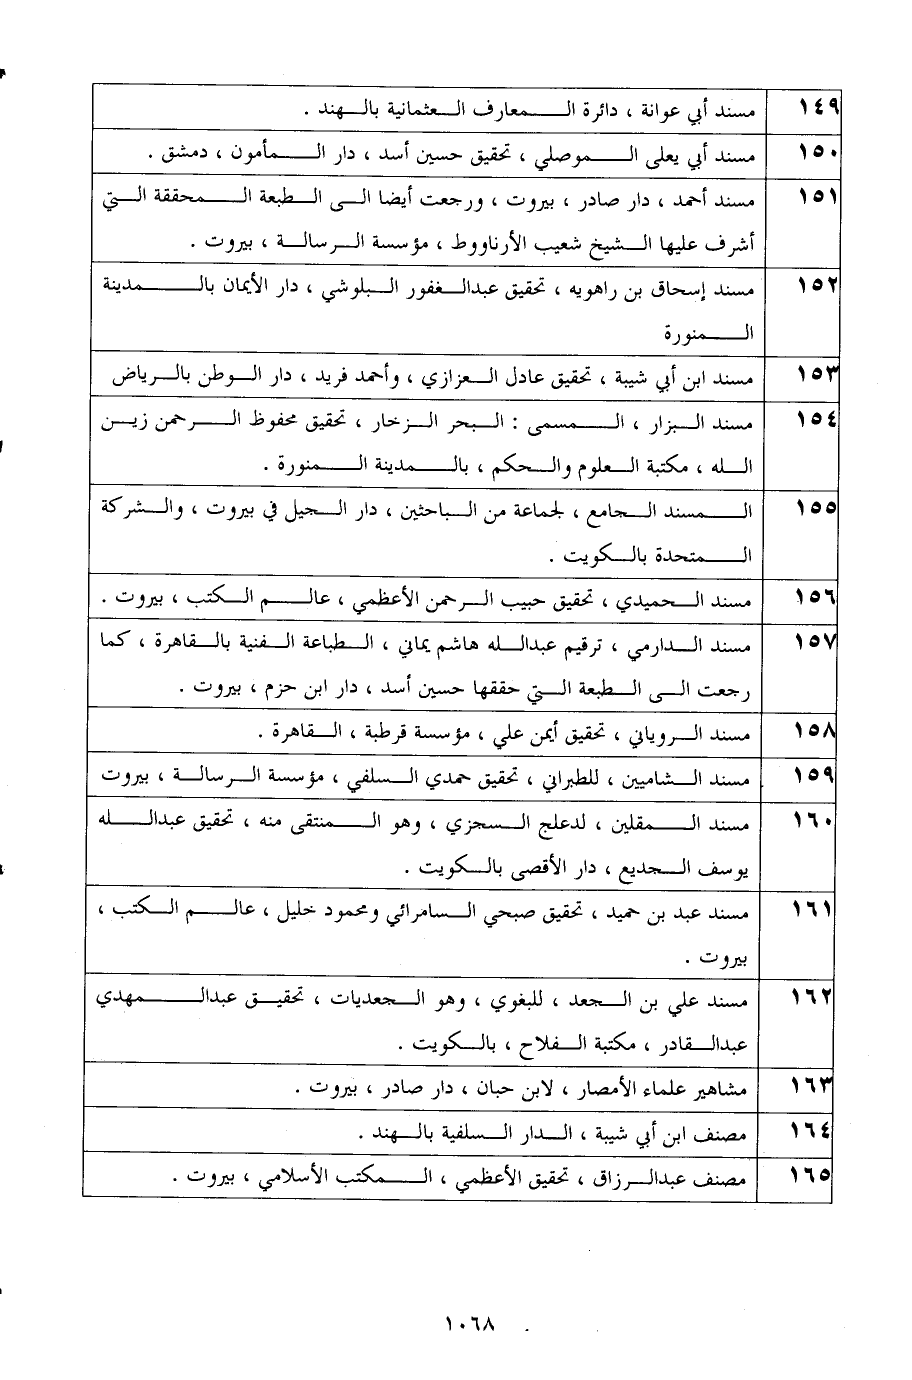 ١٤٩ مسند أبي عوانة ، دائرة المعارف العثمانية بالهند .
١٥٠ مسند أبي يعلى الموصلي ، تحقيق حسين أسد ، دار المأمون ، دمشق .
١٥١ مسند أحمد ، دار صادر ، بيروت ، ورجعت أيضا الى الطبعة المحققة التي
أشرف عليها الشيخ شعيب الأرناووط ، مؤسسة الرسالة ، بيروت .
١٥٢ مسند إسحاق بن راهويه ، تحقيق عبدالغفور البلوشي ، دار الأيمان بالمدينة
المنورة
١٥٣ مسند ابن أبي شيبة ، تحقيق عادل العزازي ، وأحمد فريد ، دار الوطن بالرياض
١٥٤ مسند البزار ، المسمى : البحر الزخار ، تحقيق محفوظ الرحمن زين
الله ، مكتبة العلوم والحكم ، بالمدينة المنورة .
١٥٥ المسند الجامع ، لجماعة من الباحثين ، دار الجيل في بيروت ، والشركة
المتحدة بالكويت .
١٥٦ مسند الحميدي ، تحقيق حبيب الرحمن الأعظمي ، عالم الكتب ، بيروت .
١٥٧ مسند الدارمي ، ترقيم عبدالله هاشم يماني ، الطباعة الفنية بالقاهرة ، كما
رجعت الى الطبعة التي حققها حسين أسد ، دار ابن حزم ، بيروت .
١٥٨ مسند الروياني ، تحقيق أيمن علي ، مؤسسة قرطبة ، القاهرة .
١٥٩ مسند الشاميين ، للطبراني ، تحقيق حمدي السلفي ، مؤسسة الرسالة ، بيروت
١٦٠ مسند المقلين ، لدعلج السجزي ، وهو المنتقى منه ، تحقيق عبدالله
يوسف الجديع ، دار الأقصى بالكويت .
١٦١ مسند عبد بن حميد ، تحقيق صبحي السامرائي ومحمود خليل ، عالم الكتب ،
بيروت .
١٦٢ مسند علي بن الجعد ، للبغوي ، وهو الجعديات ، تحقيق عبدالمهدي
عبدالقادر ، مكتبة الفلاح ، بالكويت .
١٦٣ مشاهير علماء الأمصار ، لابن حبان ، دار صادر ، بيروت .
١٦٤ مصنف ابن أبي شيبة ، الدار السلفية بالهند .
١٦٥ مصنف عبدالرزاق ، تحقيق الأعظمي ، المكتب الأسلامي ، بيروت .
١٠٦٨